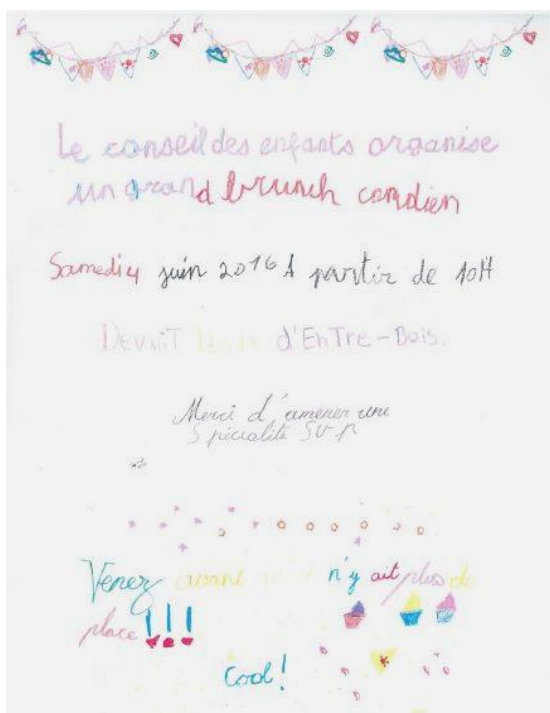 Le conseil des enfants organise
un grand brunch candien
Samedi 4 juin 2016 à partir de 10H
Devant d'EnTre-Bois.
Merci d'amener une
Spécialité SVP
Venez avant n'y ait plus de
place !!!
Cool!